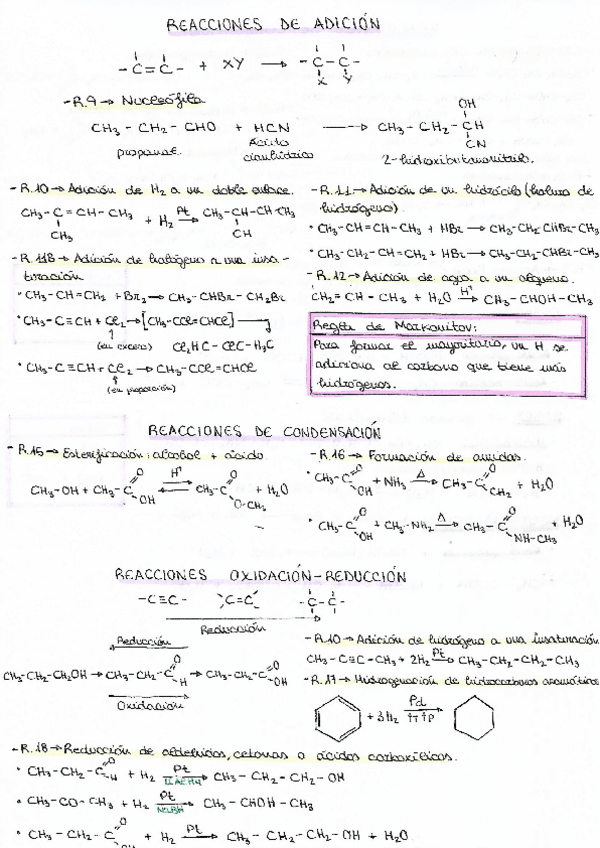 REACCIONES DE ADICIÓN
-C=C- + XY → -C-C-
X Y
-R.9 → Nucleófila
OH
CH3 - CH2 - CHO + HCN → CH3 - CH2 - CH
CN
propanal Ácido cianhídrico 2-hidroxibutanonitrilo.
-R.10 → Adición de H2 a un doble enlace.
CH3-C=CH-CH3 + H2 Pt→ CH3-CH-CH-CH3
CH3 CH
-R.11B → Adición de halógeno a una insa-
turación
• CH3-CH=CH2 + Br2 → CH3-CHBr-CH2Br
• CH3-C≡CH + Cl2 → [CH3-CCl=CHCl]
(en exceso) Cl2HC-ClC-H3C
• CH3-C≡CH + Cl2 → CH3-CCl=CHCl
(en proporción)
-R.11 → Adición de un hidrácido (haluro de
hidrógeno)
• CH3-CH=CH-CH3 + HBr → CH3-CH2-CHBr-CH3
• CH3-CH2-CH=CH2 + HBr → CH3-CH2-CHBr-CH3
-R.12 → Adición de agua a un alqueno.
CH2=CH-CH3 + H2O H+→ CH3-CHOH-CH3
Regla de Markonitov:
Para formar el mayoritario, un H se
adiciona al carbono que tiene más
hidrógenos.
REACCIONES DE CONDENSACIÓN
-R.15 → Esterificación: alcohol + ácido
O H+ O
CH3-OH + CH3-C ⇌ CH3-C + H2O
OH O-CH3
-R.16 → Formación de amidas.
O O
• CH3-C + NH3 Δ→ CH3-C + H2O
OH CH2
O O
• CH3-C + CH3-NH2 Δ→ CH3-C + H2O
OH NH-CH3
REACCIONES OXIDACIÓN-REDUCCIÓN
-C≡C- >C=C< -C-C-
Reducción
Reducción
O O
CH3-CH2-CH2OH → CH3-CH2-C → CH3-CH2-C
H OH
Oxidación
-R.10 → Adición de hidrógeno a una insaturación
CH3-C≡C-CH3 + 2H2 Pt→ CH3-CH2-CH2-CH3
-R.17 → Hidrogenación de hidrocarburos aromáticos
+ 3H2 Pd→
↑T ↑P
-R.18 → Reducción de aldehídos, cetonas o ácidos carboxílicos.
O
• CH3-CH2-C-H + H2 Pt→ CH3-CH2-CH2-OH
LiAlH4
• CH3-CO-CH3 + H2 Pt→ CH3-CHOH-CH3
O
• CH3-CH2-C + H2 Pt→ CH3-CH2-CH2-OH + H2O
OH